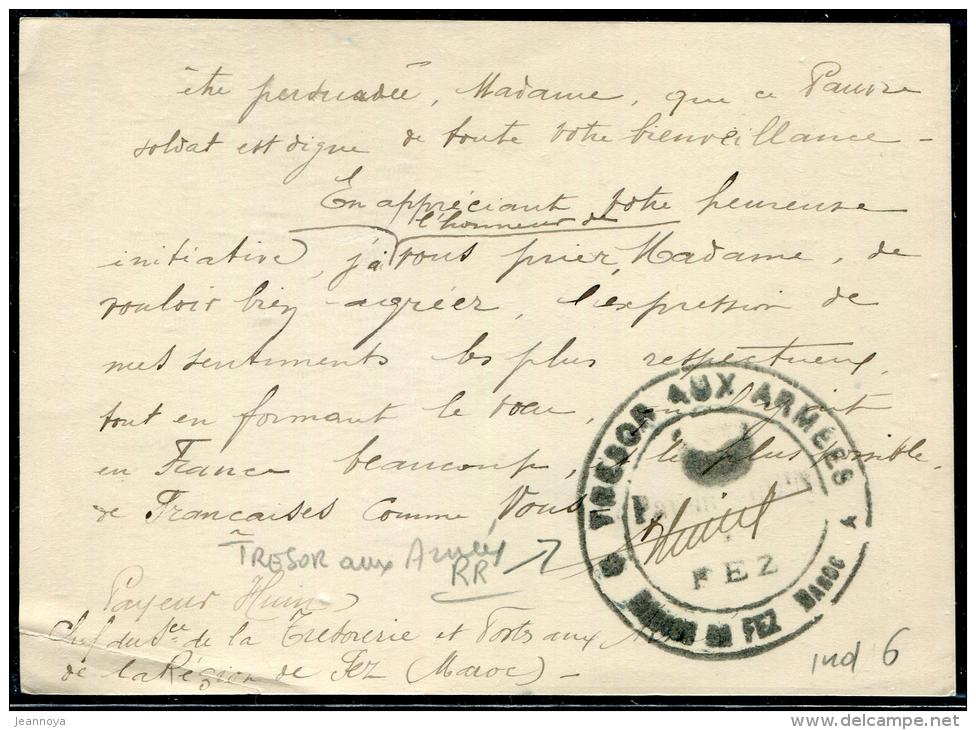 être persuadée, Madame, que ce Pauvre
soldat est digne de toute votre bienveillance -
En appréciant votre heureuse
l'honneur de
initiative, j'ai vous prier, Madame, de
vouloir bien agréer, l'expression de
mes sentiments les plus respectueux,
tout en formant le vœu,
en France beaucoup, le plus possible,
de Françaises comme Vous
TRESOR aux Armées
RR
Payeur Huin
Chef du Sce de la Trésorerie et Postes aux
de la Région de Fez (Maroc) -
TRESOR AUX ARMÉES
FEZ
REGION DE FEZ MAROC
ind 6
jeannoya
delcampe.net